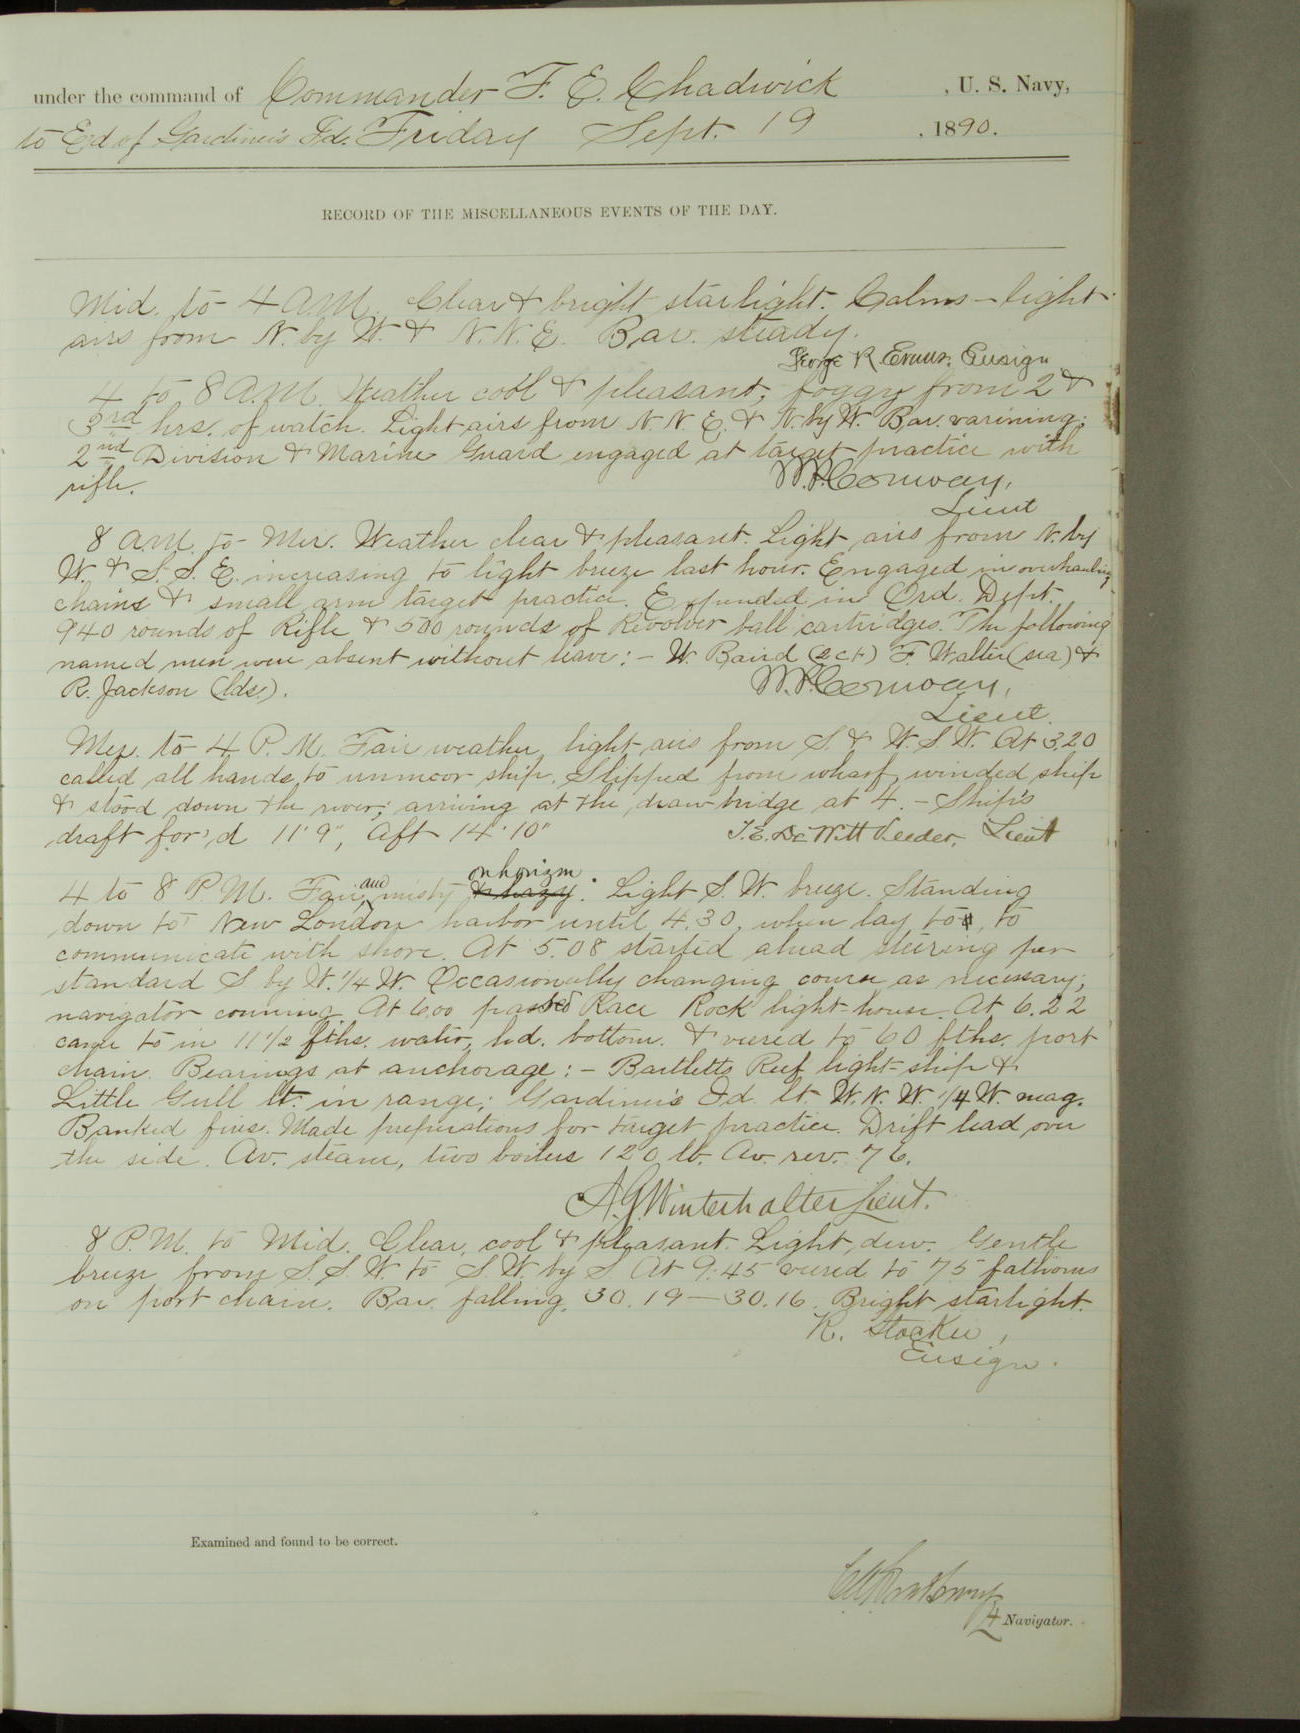 under the command of Commander F. E. Chadwick, U. S. Navy,
to E'd of Gardiner's Id. Friday Sept. 19, 1890.
RECORD OF THE MISCELLANEOUS EVENTS OF THE DAY.
Mid. to 4 A.M. Clear & bright starlight. Calms - light
airs from N. by W. & N.N.E. Bar. steady.
George R Evans, Ensign
4 to 8 A.M. Weather cool & pleasant; foggy from 2 &
3rd hrs. of watch. Light airs from N.N.E. & N. by W. Bar. varining;
2nd Division & Marine Guard engaged at target practice with
rifle.
W.P. Conway,
Lieut
8 A.M. to Mer. Weather clear & pleasant. Light airs from N. by
W. & S.S.E. increasing to light breeze last hour. Engaged in overhauling
chains & small arm target practice. Expended in Ord. Dept.
940 rounds of Rifle & 500 rounds of Revolver ball cartridges. The following
named men were absent without leave:- W. Baird (2 c.f.) F. Walter (sea) &
R. Jackson (lds.).
W.P. Conway,
Lieut.
Mer. to 4 P.M. Fair weather, light airs from S. & W.S.W. At 3.20
called all hands, to unmoor ship. Slipped from wharf, winded ship
& stood down the river; arriving at the draw-bridge at 4. - Ship's
draft for'd 11' 9", Aft 14' 10"
T.E. DeWitt Veeder, Lieut
4 to 8 P.M. Fair, and misty & hazy on horizon. Light S.W. breeze. Standing
down to New London harbor until 4.30, when lay to, to
communicate with shore. At 5.08 started ahead steering per
standard S by W. 1/4 W. Occasionally changing course as necessary;
navigator conning. At 6.00 passed Race Rock light-house. At 6.22
came to in 11 1/2 fths. water, hd. bottom. & veered to 60 fths. port
chain. Bearings at anchorage:- Bartletts Reef light-ship &
Little Gull lt. in range; Gardiner's Id. lt. W.N.W. 1/4 W. mag.
Banked fires. Made preparations for target practice. Drift lead over
the side. Av. steam, two boilers 120 lb. Av. rev. 76.
A.G. Winterhalter Lieut.
8 P.M. to Mid. Clear, cool & pleasant. Light dew. Gentle
breeze from S.S.W. to S.W. by S. At 9:45 veered to 75 fathoms
on port chain. Bar. falling, 30.19-30.16. Bright starlight.
R. Stocker,
Ensign.
Examined and found to be correct.
Navigator.